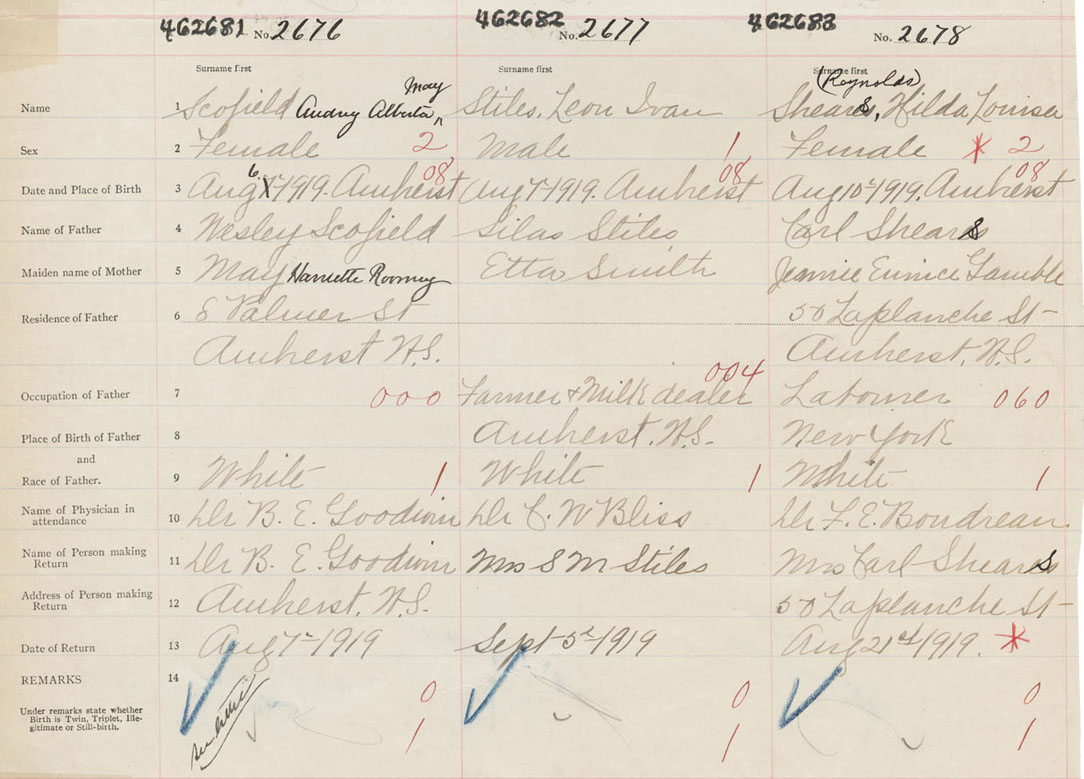 462681 No. 2676 462682 No. 2677 462683 No. 2678
Surname first Surname first Surname first
May (Reynolds)
Name 1 Scofield Audrey Alberta, Stiles, Leon Ivan Shears, Hilda Louisa
Sex 2 Female 2 Male 1 Female * 2
6 08 08 08
Date and Place of Birth 3 Aug 7 1919. Amherst Aug 7th 1919. Amherst Aug 10th 1919. Amherst
Name of Father 4 Wesley Scofield Silas Stiles Carl Shears
Maiden name of Mother 5 May Harriette Roomey Etta Smith Jennie Eunice Gamble
Residence of Father 6 E Palmer St 50 Laplanche St
Amherst N.S. Amherst. N.S.
004
Occupation of Father 7 000 Farmer + Milk dealer Labourer 060
Place of Birth of Father 8 Amherst. N.S. New York
and
Race of Father. 9 White 1 White 1 White 1
Name of Physician in
attendance 10 Dr B. E. Goodwin Dr C. W Bliss Dr F. E. Boudreau
Name of Person making
Return 11 Dr B. E. Goodwin Mrs S M Stiles Mrs Carl Shears
Address of Person making
Return 12 Amherst. N.S. 50 Laplanche St
Date of Return 13 Aug 7th 1919 Sept 5th 1919 Aug 21st 1919. *
REMARKS 14
0 0 0
Under remarks state whether
Birth is Twin, Triplet, Ille-
gitimate or Still-birth.
1 1 1